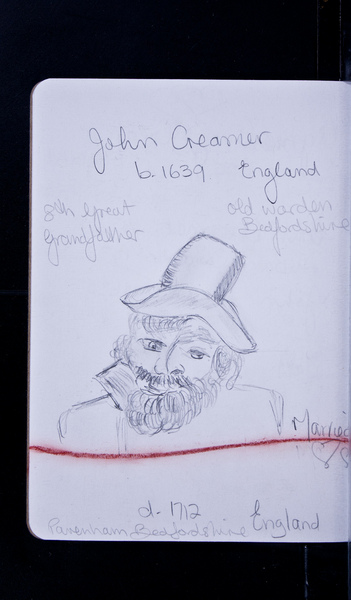 John Creamer
b. 1639 England
8th Great old warden
Grandfather Bedfordshire
Married
d. 1712 England
Pavenham Bedfordshire